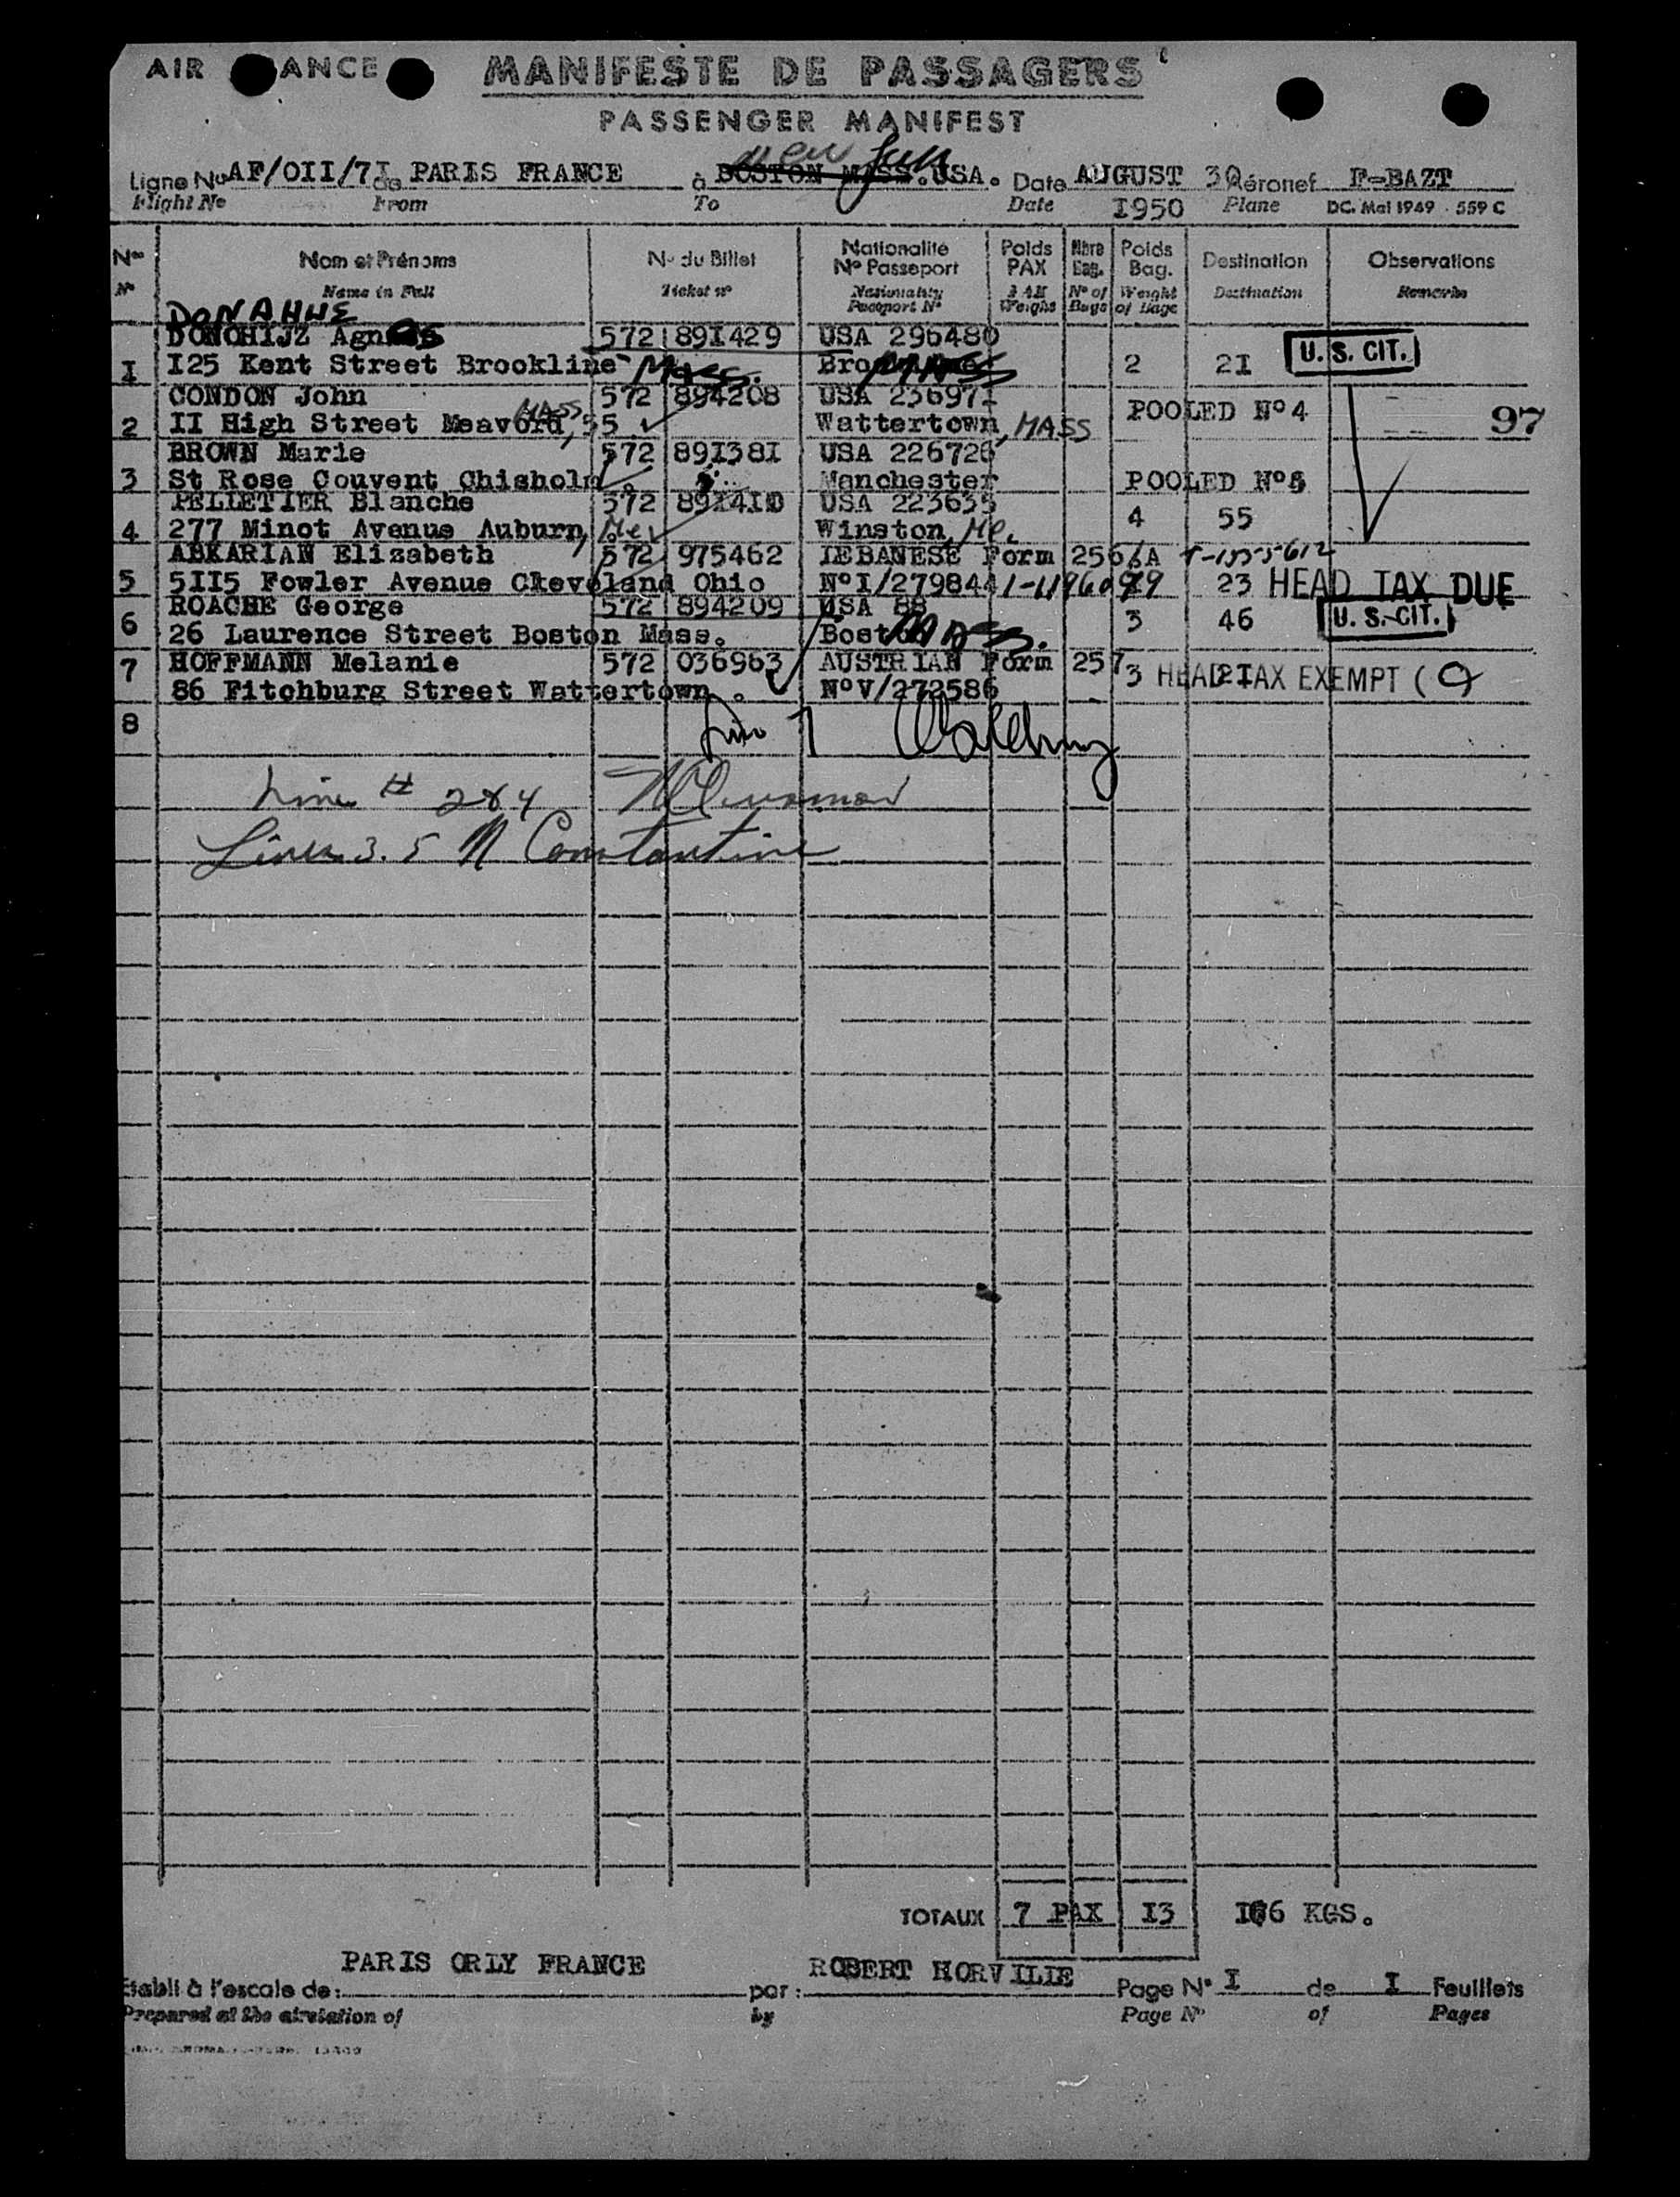 AIR ANCE MANIFESTE DE PASSAGERS
PASSENGER MANIFEST
new
Ligne No AF/OII/7I de PARIS FRANCE à BOSTON MASS.USA. Date AUGUST 30 Aéronef F-BAZT
Flight No From To Date I950 Plane DC. Mai 1949 - 559 C
Nos Nom et Prénoms No du Billet Nationalité No Passeport Poids PAX Nbre Bag. Poids Bag. Destination Observations
No Name in Full Ticket no Nationality Passport No PAX Weight No of Bags Weight of Bags Destination Remarks
DONAHUE
DONOHIJZ Agnes 572 89I429 USA 296480
1 I25 Kent Street Brookline Mass. Bro MASS 2 2I U. S. CIT.
CONDON John 572 894208 USA 23697I
2 II High Street Meavord, MASS 55 Wattertown, MASS POOLED No 4 97
BROWN Marie 572 89I38I USA 226726
3 St Rose Couvent Chisholm Manchester POOLED No5
PELLETIER Blanche 572 89I4I0 USA 223635
4 277 Minot Avenue Auburn, Me Winston, Me. 4 55
ABKARIAN Elizabeth 572 975462 LEBANESE Form 256/A T-1555612
5 5II5 Fowler Avenue Cleveland Ohio NoI/279844 23 HEAD TAX DUE
ROACHE George 572 894209 USA 88
6 26 Laurence Street Boston Mass. Boston Mass. 3 46 U. S. CIT.
HOFFMANN Melanie 572 036963 AUSTRIAN Form 257
7 86 Fitchburg Street Wattertown . NoV/272586 3 2I HEAD TAX EXEMPT (
8 Line 7
Line # 2 & 4
Lines 3. 5 M Constantine
TOTAUX 7 PAX I3 I66 KGS.
PARIS ORLY FRANCE ROBERT HORVILLE
Etabli à l'escale de: par: Page No I de I Feuillets
Prepared at the airstation of by Page No of Pages